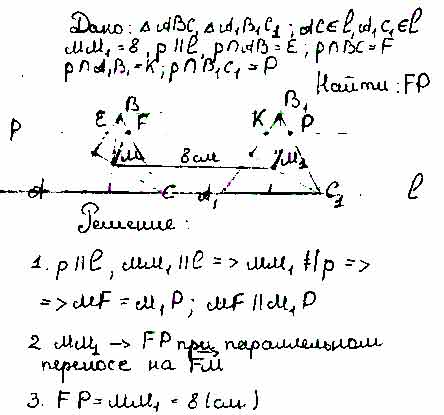 Дано: △ABC, △A₁B₁C₁; AC∈l, A₁C₁∈l
MM₁=8, p∥l, p∩AB=E; p∩BC=F
p∩A₁B₁=K; p∩B₁C₁=P
Найти: FP
B B₁
p E F K P
M 8см M₁
A C A₁ C₁ l
Решение:
1. p∥l, MM₁∥l => MM₁∥p =>
=> MF=M₁P; MF∥M₁P
2 MM₁ → FP при параллельном
переносе на FM
3. FP=MM₁=8(см)